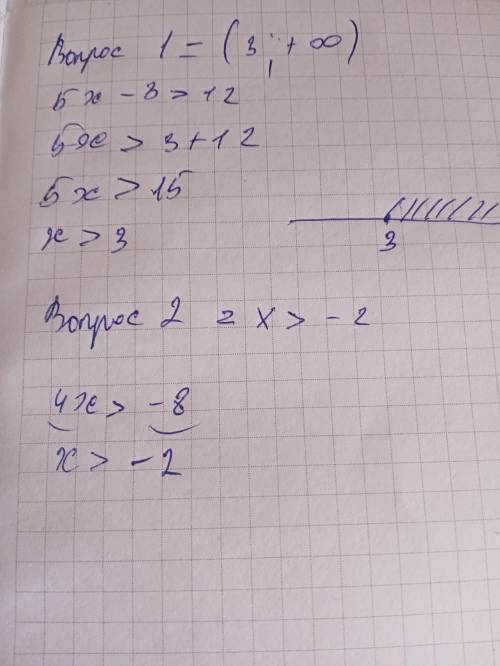 Вопрос 1 = (3 ; +∞)
5x - 3 > 12
5x > 3 + 12
5x > 15
x > 3
3
Вопрос 2 = x > -2
4x > -8
x > -2